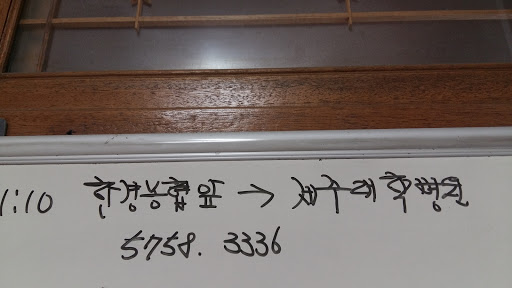 1:10 한경농협앞 → 제주대학병원
5758. 3336